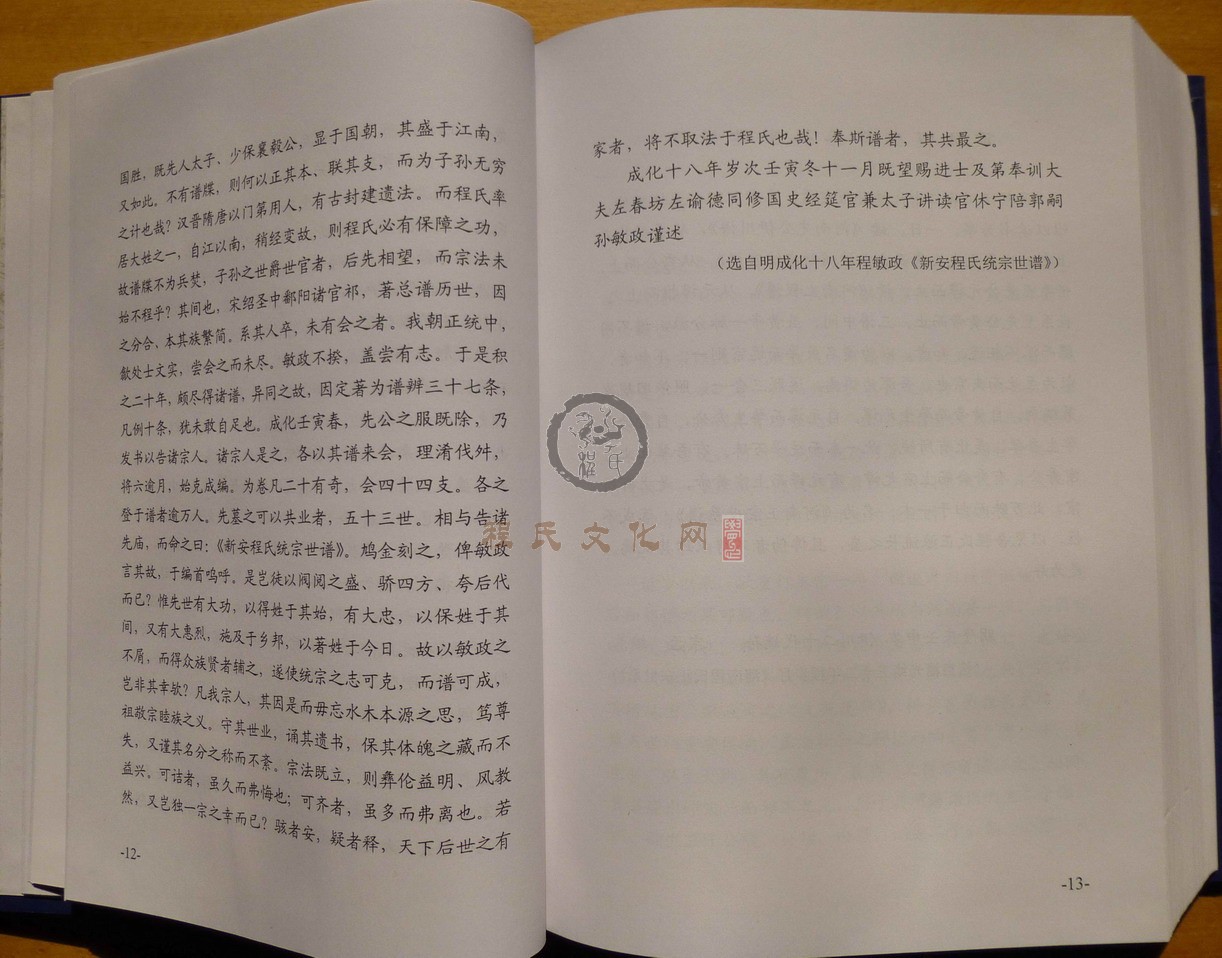 国胜，既先人太子、少保襄毅公，显于国朝，其盛于江南，
又如此。不有谱牒，则何以正其本、联其支，而为子孙无穷
之计也哉？汉晋隋唐以门第用人，有古封建遗法。而程氏率
居大姓之一，自江以南，稍经变故，则程氏必有保障之功，
故谱牒不为兵焚，子孙之世爵世官者，后先相望，而宗法未
始不程乎？其间也，宋绍圣中鄱阳诸官祁，著总谱历世，因
之分合，本其族繁简。系其人卒，未有会之者。我朝正统中，
歙处士文实，尝会之而未尽。敏政不揆，盖尝有志。于是积
之二十年，颇尽得诸谱，异同之故，因定著为谱辨三十七条，
凡例十条，犹未敢自足也。成化壬寅春，先公之服既除，乃
发书以告诸宗人。诸宗人是之，各以其谱来会，理淆伐舛，
将六逾月，始克成编。为卷凡二十有奇，会四十四支。各之
登于谱者逾万人。先墓之可以共业者，五十三世。相与告诸
先庙，而命之曰：《新安程氏统宗世谱》。鸠金刻之，俾敏政
言其故，于编首呜呼。是岂徒以阀阅之盛、骄四方、夸后代
而已？惟先世有大功，以得姓于其始，有大忠，以保姓于其
间，又有大惠烈，施及于乡邦，以著姓于今日。故以敏政之
不屑，而得众族贤者辅之，遂使统宗之志可克，而谱可成，
岂非其幸欤？凡我宗人，其因是而毋忘水木本源之思，笃尊
祖敬宗睦族之义。守其世业，诵其遗书，保其体魄之藏而不
失，又谨其名分之称而不紊。宗法既立，则彝伦益明、风教
益兴。可诘者，虽久而弗悔也；可齐者，虽多而弗离也。若
然，又岂独一宗之幸而已？骇者安，疑者释，天下后世之有
-12-
家者，将不取法于程氏也哉！奉斯谱者，其共最之。
成化十八年岁次壬寅冬十一月既望赐进士及第奉训大
夫左春坊左谕德同修国史经筵官兼太子讲读官休宁陪郭嗣
孙敏政谨述
（选自明成化十八年程敏政《新安程氏统宗世谱》）
程氏文化网
-13-